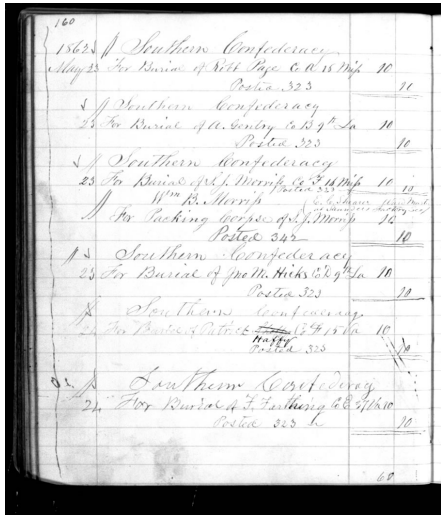 160
1862 Southern Confederacy
May 23 For Burial of Robt Page Co A 18 Miss 10
Posted 323 10
Southern Confederacy
23 For Burial of A. Gentry Co B 9th La 10
Posted 323 10
Southern Confederacy
23 For Burial of S. J. Morriss Co F 16 Miss 10
Posted 323 10
Wm B. Morriss
For Packing Corpse of S. J. Morriss 10
Posted 342 10
Southern Confederacy
23 For Burial of Jno M. Hicks Co D 9th La 10
Posted 323 10
Southern Confederacy
24 For Burial of Patrick Co F 15 Va 10
Haffy
Posted 323 10
Southern Confederacy
24 For Burial of F. Farthing Co E 10
Posted 323 10
60